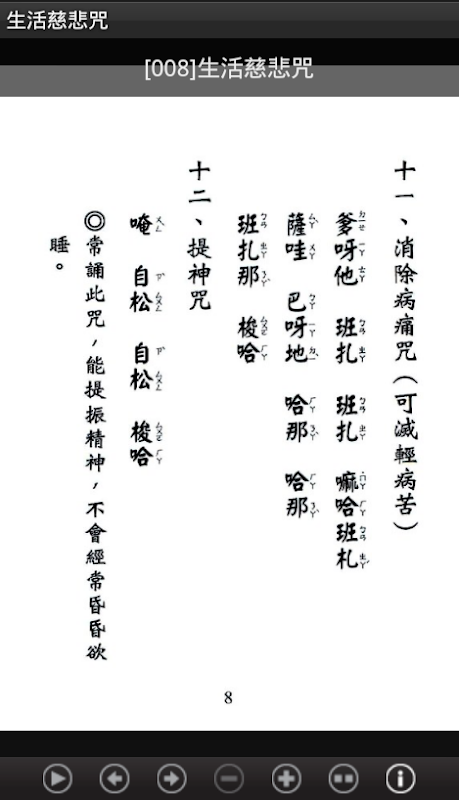 生活慈悲咒
[008]生活慈悲咒
十一、消除病痛咒(可減輕病苦)
爹呀他 班扎 班扎 嘛哈班札
薩哇 巴呀地 哈那 哈那
班扎那 梭哈
十二、提神咒
唵 自松 自松 梭哈
◎常誦此咒,能提振精神,不會經常昏昏欲
睡。
8